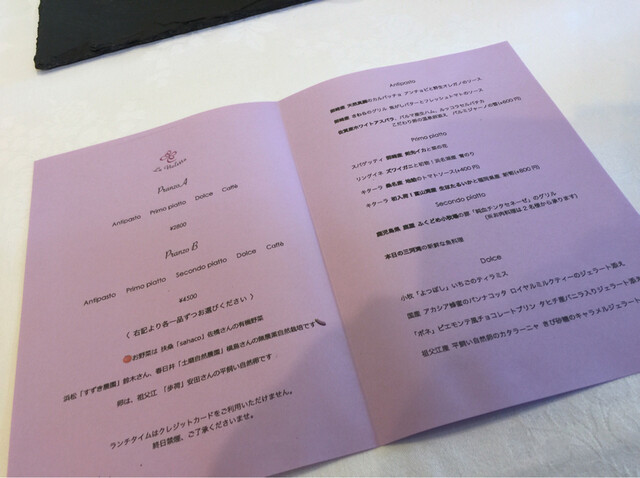 Pranzo A
Antipasto Primo piatto Dolce Caffè
¥2800
Pranzo B
Antipasto Primo piatto Secondo piatto Dolce Caffè
¥4500
〈 右記より各一品ずつお選びください 〉
お野菜は 扶桑「sahaco」佐橋さんの有機野菜
浜松「すずき農園」鈴木さん、春日井「土磨自然農園」横島さんの無農薬自然栽培です
卵は、祖父江 「歩荷」安田さんの平飼い自然卵です
ランチタイムはクレジットカードをご利用いただけません。
終日禁煙、ご了承くださいませ。
Antipasto
のカルパッチョ アンチョビと野生オレガノのソース
さわらのグリル 焦がしバターとフレッシュトマトのソース
佐賀産ホワイトアスパラ、パルマ産生ハム、ルッコラセルバチカ
こだわり卵の温泉卵添え、パルミジャーノの雪(+600円)
Primo piatto
スパゲッティ と菜の花
リングイネ ズワイガニと岩態
キターラ 桑名産 地蛤のトマトソース(+400円)
キターラ 初入荷!富山湾産 生ほたるいかと
Secondo piatto
鹿児島県 鹿屋 ふくどめ小牧場の豚「純血チンタセネーゼ」のグリル
(※お肉料理は2名様から承ります)
本日の三河湾の新鮮な魚料理
Dolce
小牧「よつぼし」いちごのティラミス
国産 アカシア蜂蜜のパンナコッタ ロイヤルミルクティーのジェラート添え
「ボネ」ピエモンテ風チョコレートプリン タヒチ産バニラ入りジェラート添え
祖父江産 平飼い自然卵のカタラーニャ きび砂糖のキャラメルジェラート